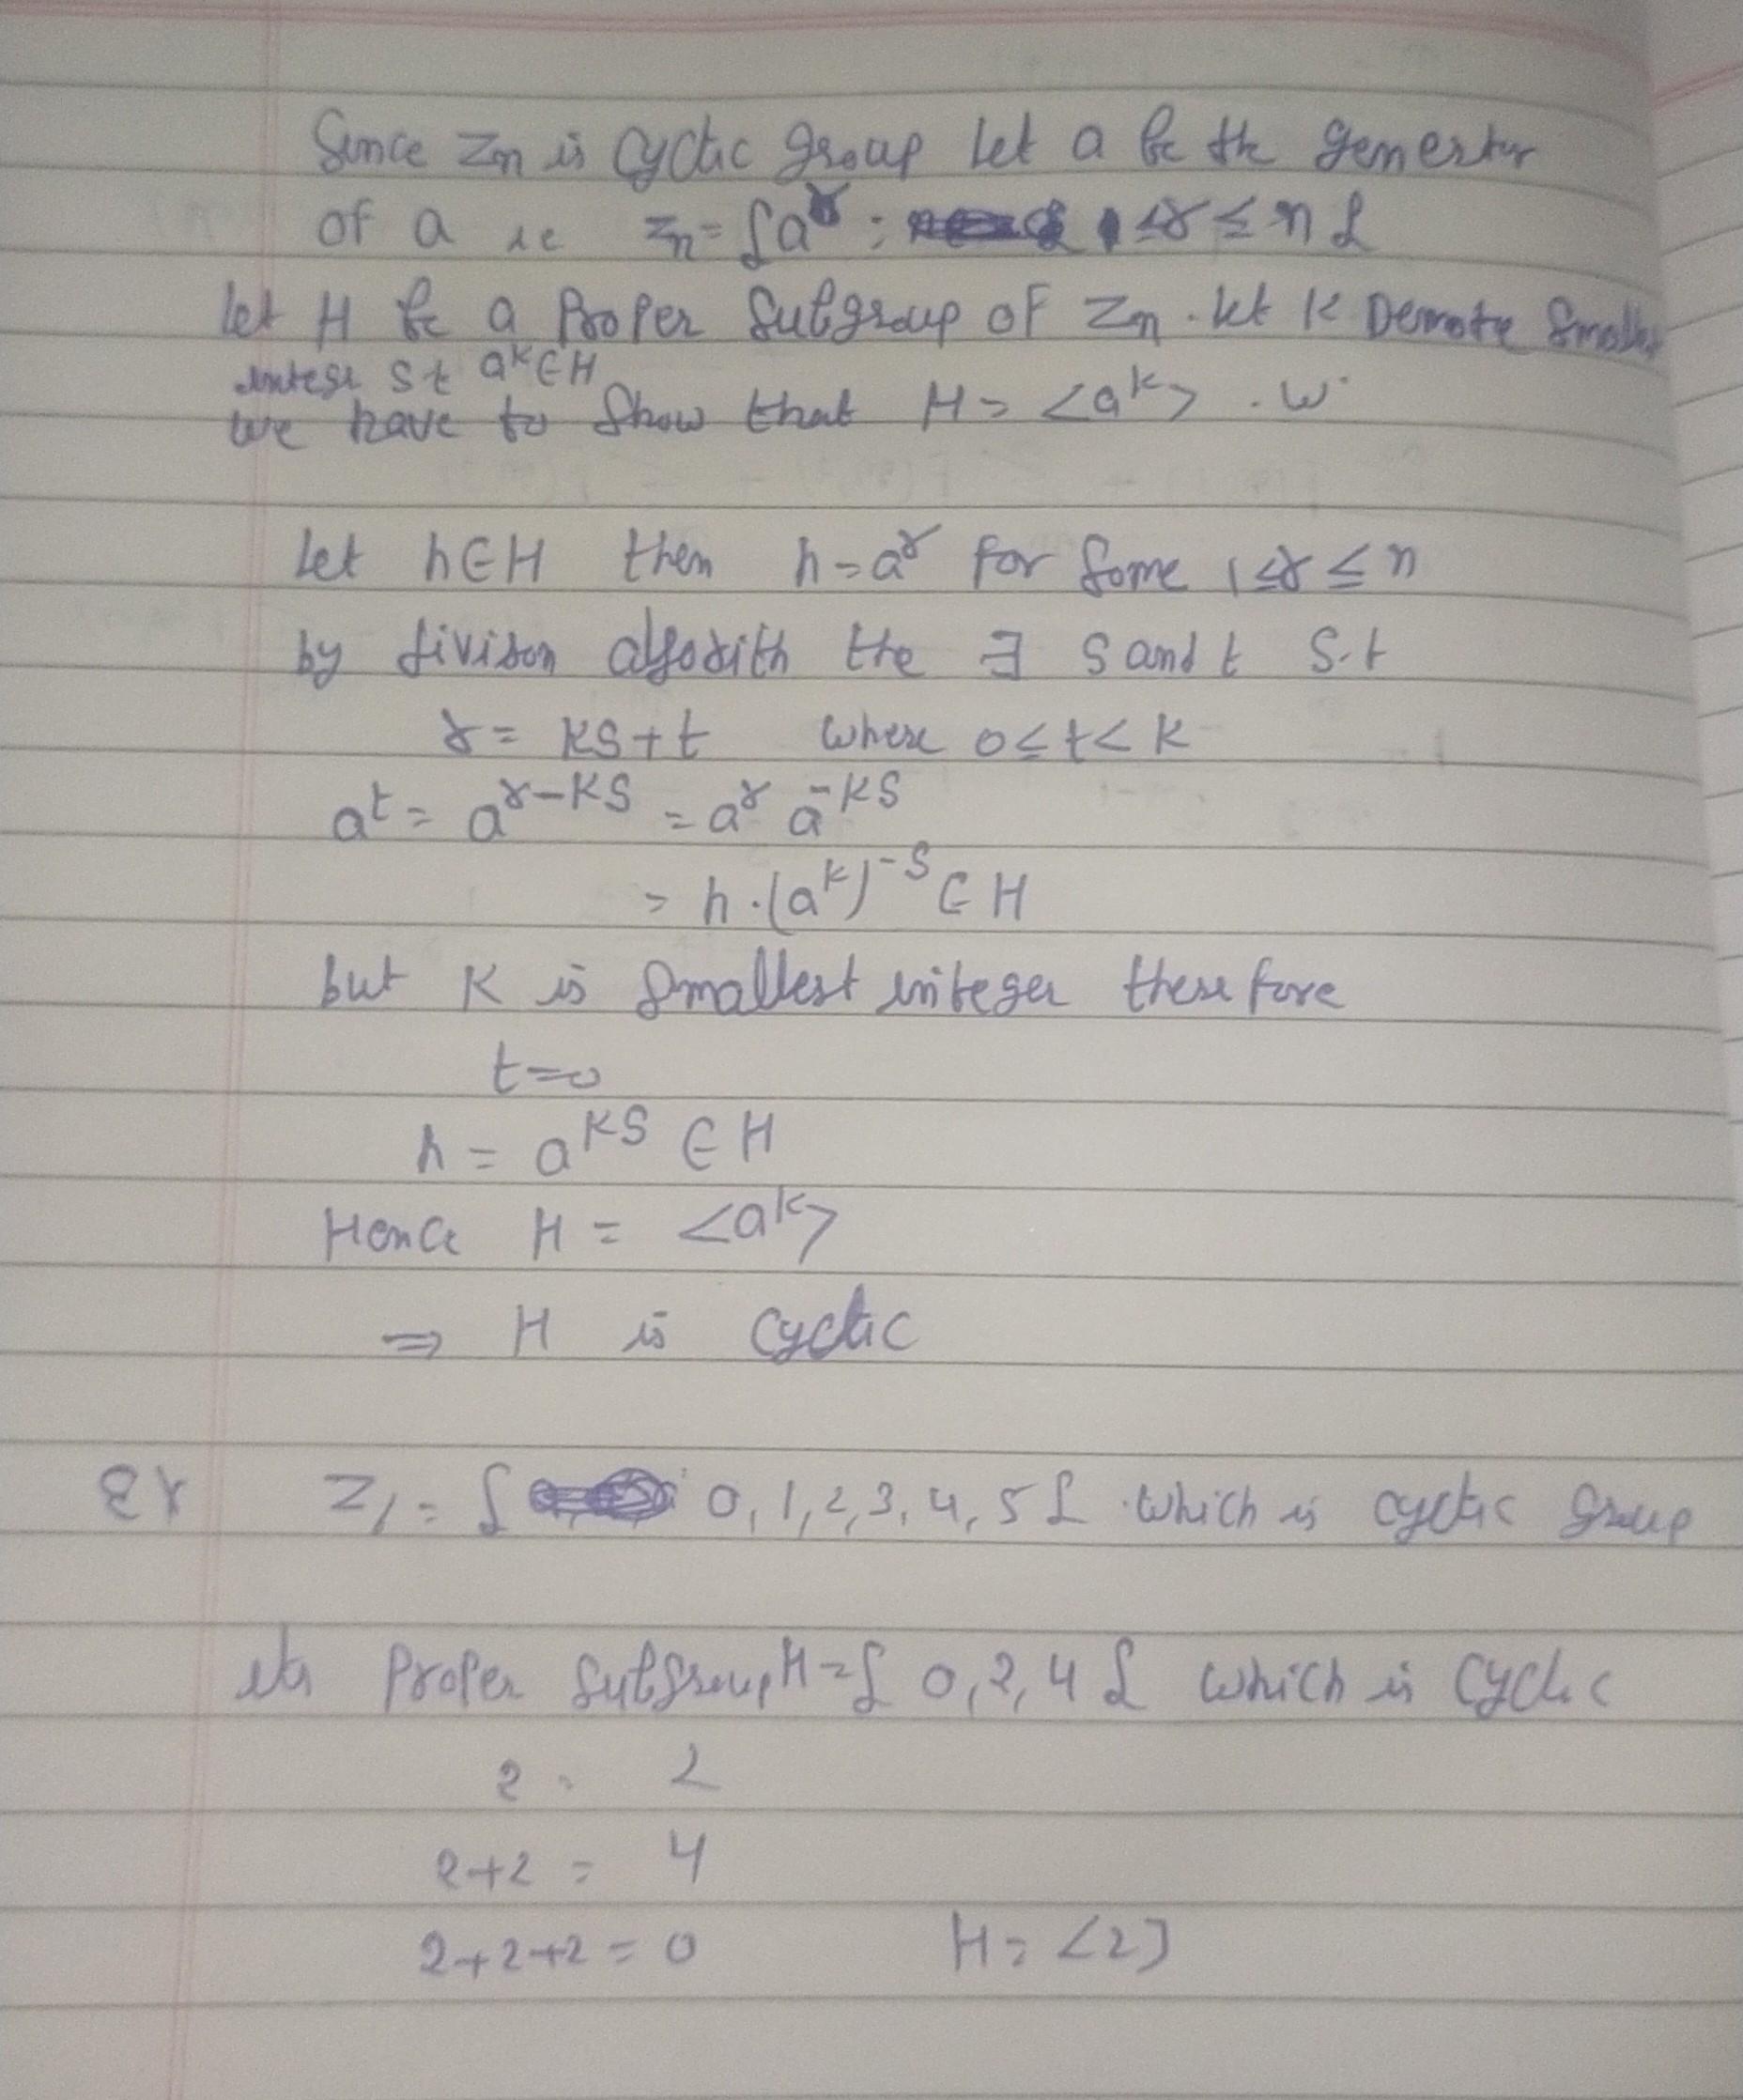 Since Zn is cyclic group let a be the generter
of a ie Zn = {a^r : 1 ≤ r ≤ n}
let H be a Proper Subgroup of Zn. let K Denote Smallest
integr s t a^k ∈ H
we have to Show that H = <a^k> . w
Let h ∈ H then h = a^r for some 1 ≤ r ≤ n
by divison algorith the ∃ S and t S.t
r = KS + t where 0 ≤ t < K
a^t = a^(r-KS) = a^r a^-KS
= h.(a^k)^-S ∈ H
but K is Smallest integer therefore
t = 0
h = a^KS ∈ H
Hence H = <a^k>
⇒ H is cyclic
Ex = { 0, 1, 2, 3, 4, 5 } which is cyclic group
its Proper Subgroup H = { 0, 2, 4 } which is cyclic
2 = 2
2+2 = 4
2+2+2 = 0 H = <2>